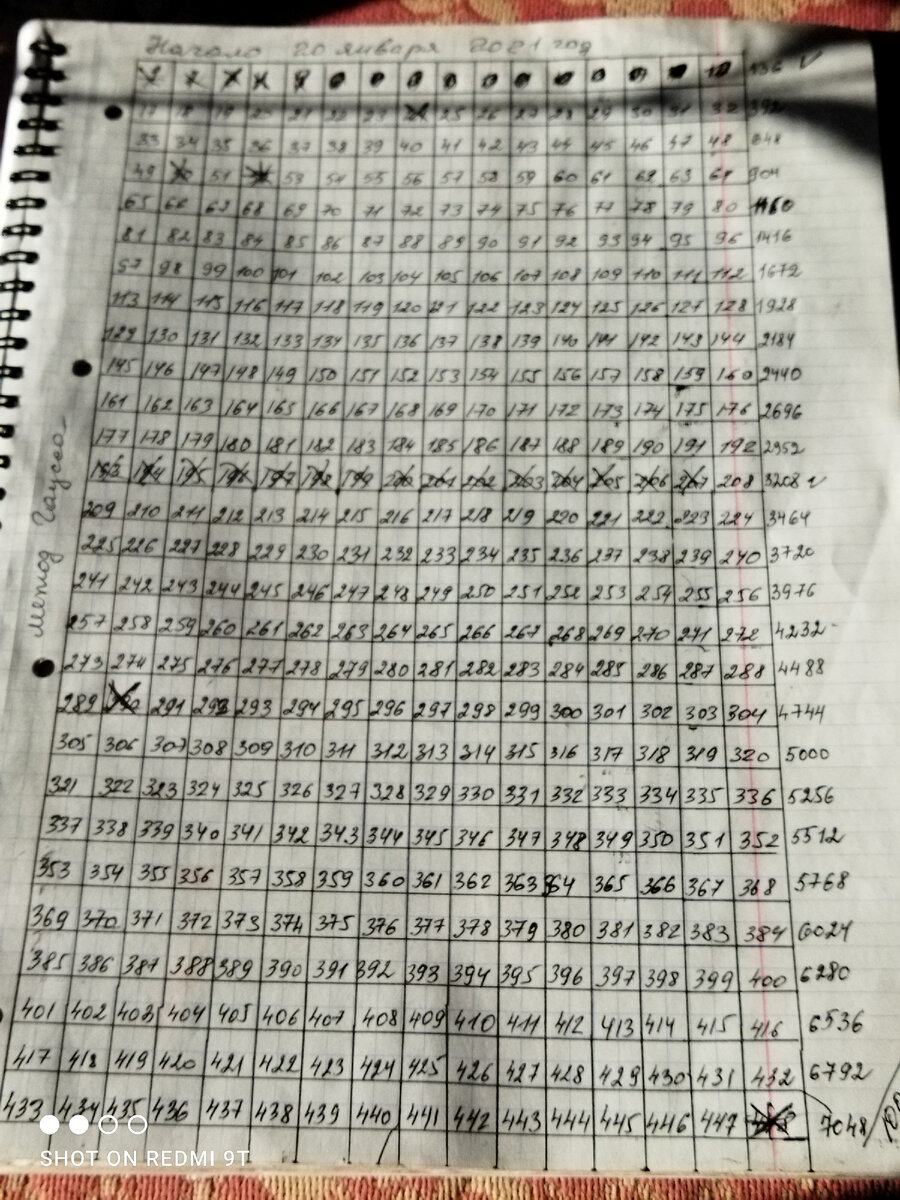 Начало 20 января 2021 год
1 2 136
17 18 19 20 21 22 23 24 25 26 27 28 29 30 31 32 392
33 34 35 36 37 38 39 40 41 42 43 44 45 46 47 48 648
49 51 53 54 55 56 57 58 59 60 61 62 63 64 904
65 66 68 69 70 71 72 73 74 75 76 77 78 79 80 1160
81 82 83 84 85 86 87 88 89 90 91 92 93 94 95 96 1416
57 98 99 100 101 102 103 104 105 106 107 108 109 110 111 112 1672
113 114 115 116 117 118 119 120 121 122 123 124 125 126 127 128 1928
129 130 131 132 133 134 135 136 137 138 139 140 141 142 143 144 2184
145 146 147 148 149 150 151 152 153 154 155 156 157 158 159 160 2440
161 162 163 164 165 166 167 168 169 170 171 172 173 174 175 176 2696
177 178 179 180 181 182 183 184 185 186 187 188 189 190 191 192 2952
193 194 195 196 197 198 199 200 201 202 203 204 205 206 207 208 3208 v
209 210 211 212 213 214 215 216 217 218 219 220 221 222 223 224 3464
225 226 227 228 229 230 231 232 233 234 235 236 237 238 239 240 3720
241 242 243 244 245 246 247 248 249 250 251 252 253 254 255 256 3976
257 258 259 260 261 262 263 264 265 266 267 268 269 270 271 272 4232
273 274 275 276 277 278 279 280 281 282 283 284 285 286 287 288 4488
289 290 291 292 293 294 295 296 297 298 299 300 301 302 303 304 4744
305 306 307 308 309 310 311 312 313 314 315 316 317 318 319 320 5000
321 322 323 324 325 326 327 328 329 330 331 332 333 334 335 336 5256
337 338 339 340 341 342 343 344 345 346 347 348 349 350 351 352 5512
353 354 355 356 357 358 359 360 361 362 363 364 365 366 367 368 5768
369 370 371 372 373 374 375 376 377 378 379 380 381 382 383 384 6024
385 386 387 388 389 390 391 392 393 394 395 396 397 398 399 400 6280
401 402 403 404 405 406 407 408 409 410 411 412 413 414 415 416 6536
417 418 419 420 421 422 423 424 425 426 427 428 429 430 431 432 6792
433 434 435 436 437 438 439 440 441 442 443 444 445 446 447 448 7048
метод Гаусса
SHOT ON REDMI 9T